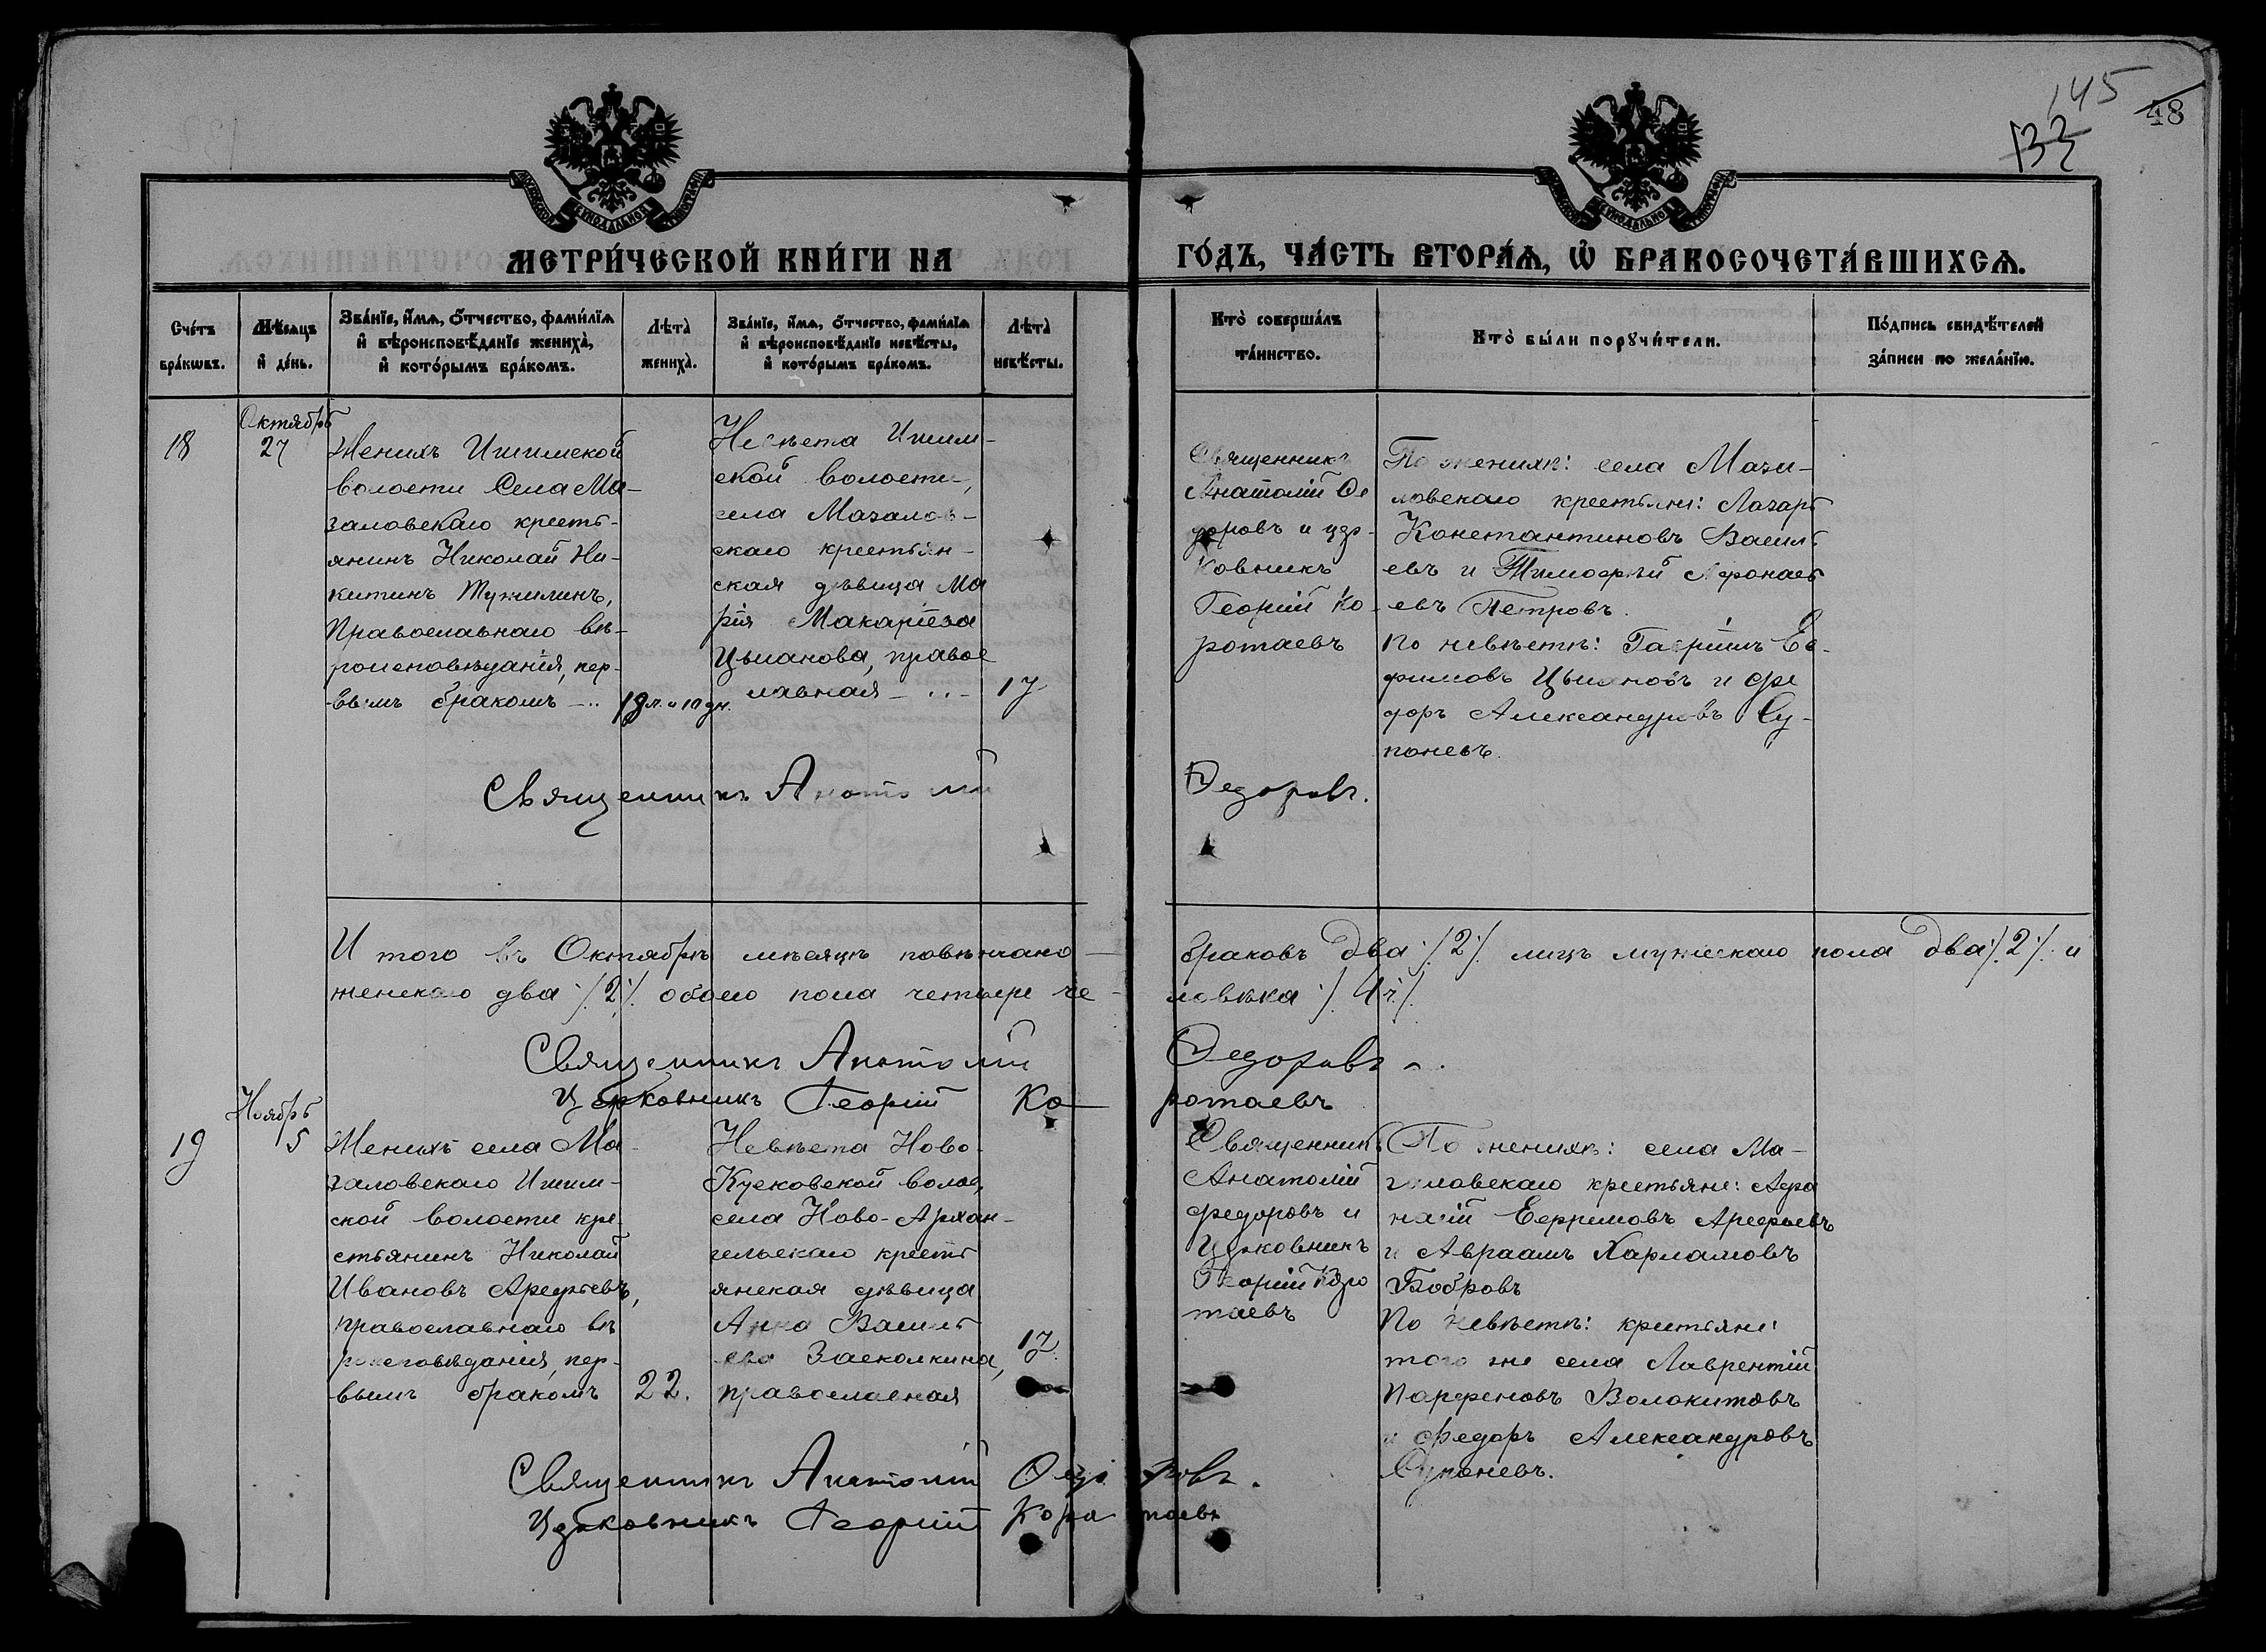 145
132
48
МЕТРИ́ЧЕСКОЙ КНИ́ГИ НА
ГО́ДЪ, ЧА́СТЬ ВТОРА́Ѧ, Ѽ БРАКОСОЧЕТА́ВШИХСѦ.
Сче́тъ бра́кѡвъ.
Мѣ́сяцъ и҆ де́нь.
Зва́нїе, и҆́мѧ, ѻ҆́тчество, фами́лїѧ
и҆ вѣроисповѣ́данїе жениха̀,
и҆ кото́рымъ бра́комъ.
Лѣта̀ жениха̀.
Зва́нїе, и҆́мѧ, ѻ҆́тчество, фами́лїѧ
и҆ вѣроисповѣ́данїе невѣ́сты,
и҆ кото́рымъ бра́комъ.
Лѣта̀ невѣ́сты.
Кто̀ соверша́лъ
та́инство.
Кто̀ бы́ли порꙋчи́тели.
По́дпись свидѣ́телей
за́писи по жела́нїю.
18
Октябрь
27
Женихъ Ишимской
волости Села Ма-
заловскаго кресть-
янинъ Николай Ни-
китинъ Тужилинъ,
Православнаго вѣ-
роисповѣданія, пер-
вымъ бракомъ
18 л. и 10 дн.
Невѣста Ишим-
ской волости,
села Мазалов-
скаго крестьян-
ская дѣвица Ма
рія Макаріева
Цыганова, правос
лавная
17
Священникъ
Анатолій Ѳе
доровъ и цер-
ковникъ
Георгій Ко-
ротаевъ
По женихѣ: села Маза-
ловскаго крестьяне: Лазарь
Константиновъ Василь
евъ и Тимофей Афонась
евъ Петровъ.
По невѣстѣ: Гавріилъ Ев-
фимовъ Цыгановъ и Фе
доръ Александровъ Су-
поневъ.
Священникъ Анатолій Ѳедоровъ.
Итого въ Октябрѣ мѣсяцѣ повѣнчано браковъ два /2/. лицъ мужескаго пола два /2/. и
женскаго два /2/. обоего пола четыре че-ловѣка /4 ч/.
Священникъ Анатолій Ѳедоровъ
Церковникъ Георгій Коротаевъ
19
Ноябрь
5
Женихъ села Ма-
заловскаго Ишим-
ской волости кре-
стьянинъ Николай
Ивановъ Арефьевъ,
православнаго вѣ
роисповѣданія, пер-
вымъ бракомъ
22.
Невѣста Ново-
Кусковской волос,
села Ново-Архан-
гельскаго кресть
янская дѣвица
Анна Василь
ева Засколкина,
православная
17.
Священникъ
Анатолій
Федоровъ и
Церковникъ
Георгій Коро
таевъ
По женихѣ: села Ма-
заловскаго крестьяне: Афа
насій Ефримовъ Арефьевъ
и Авраамъ Харламовъ
Бобровъ
По невѣстѣ: крестьяне
того же села Лаврентій
Парфеновъ Волокитовъ
и Федоръ Александровъ
Супоневъ.
Священникъ Анатолій Ѳедоровъ.
Церковникъ Георгій Коротаевъ